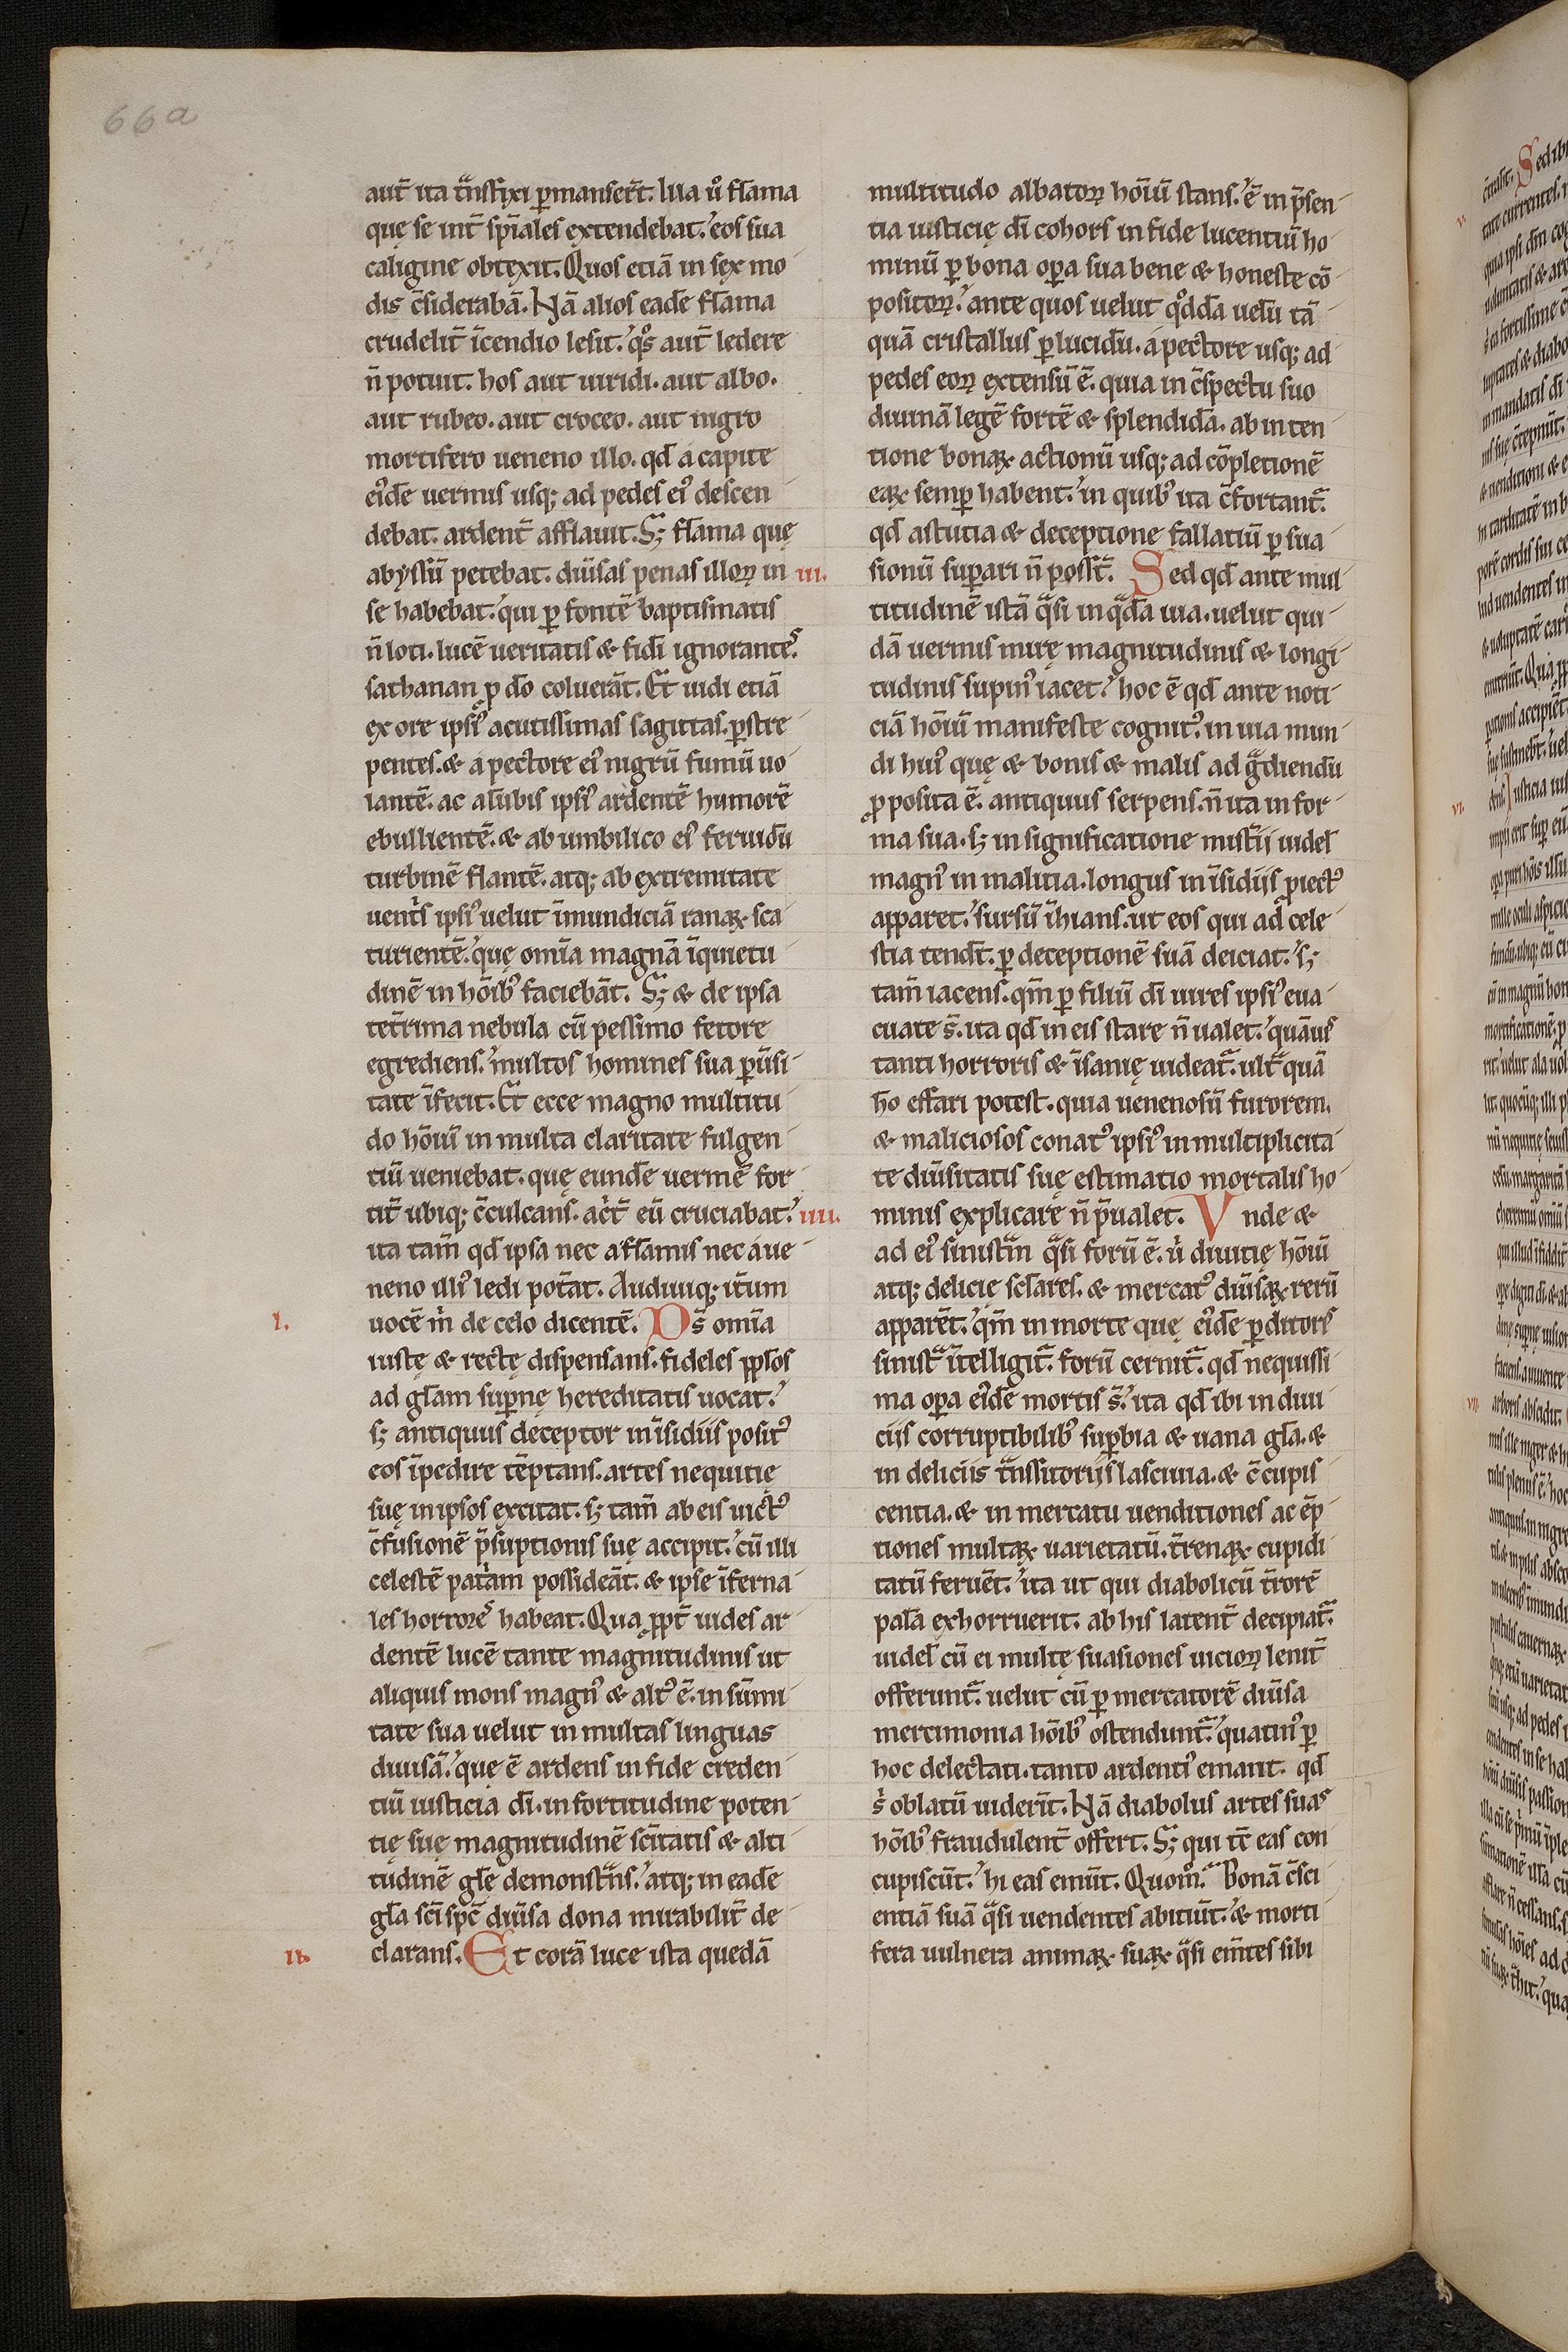 66a
aut̄ ita t̃nsfixi ꝑmanser̄t. Illa ũ flāma
quę se int̄ sp̄iales extendebat. eos sua
caligine obtexit. Quos etiā in sex mo
dis c̄siderabā. Nā alios eadē flāma
crudelit̄ īcendio lesit. q̊s aut̄ ledere
n̄ potuit. hos aut uiridi. aut albo.
aut rubeo. aut croceo. aut nigro
mortifero ueneno illo. qđ a capite
ei᾽dē uermis usq; ad pedes ei᾽ descen
debat. ardent̄ afflauit. S; flāma quę
abyssū petebat. diũsas penas illoꝝ in
se habebat. qui ꝑ fontē baptismatis
n̄ loti. lucē ueritatis & fidī ignorantes.
sathanan ꝓ dō coluerāt. Et uidi etiā
ex ore ipsi᾽ acutissimas sagittas. ꝑstre
pentes. & a pectore ei᾽ nigrū fumū uo
lantē. ac a lūbis ipsi᾽ ardentē humorē
ebullientē. & ab umbilico ei᾽ feruidū
turbinē flantē. atq; ab extremitate
uent̍s ipsi᾽ uelut īmundiciā ranaꝝ sca
turientē. quę om̄ia magnā īquietu
dinē in hōib᾽ faciebāt. S; & de ipsa
tet̄rima nebula cū pessimo fetore
egrediens. multos homines sua ꝑũsi
tate īfecit. Et ecce magno multitu
do hōiū in multa claritate fulgen
tiū ueniebat. quę eundē uermē for
tit̄ ubiq; c̄culcans. ac̍t̄ eū cruciabat.
ita tam̄ qđ ipsa nec a flāmis nec a ue
neno illi᾽ ledi pot̍at. Audiuiq; it̄um
I. uocē m̍ de celo dicentē. Ds̄ om̄ia
iustę & rectę dispensans. fideles ꝓp̄los
ad gl̄am suꝑnę hereditatis uocat.
s; antiquus deceptor in īsidiis posit᾽
eos īpedire tēptans. artes nequitię
suę in ipsos excitat. s; tam̄ ab eis uict᾽
c̄fusionē p̄suptionis suę accipit. cū illi
celestē pat̍am possideāt. & ipse īferna
les horrores habeat. Qua ꝓpt̄ uides ar
dentē lucē tante magnitudinis ut
aliquis mons magn᾽ & alt᾽ ē. in sūmi
tate sua uelut in multas linguas
diuisā. quę ē ardens in fide creden
tiū iusticia dī. in fortitudine poten
tię suę magnitudinē scītatis & alti
tudinē glē demonst̃ns. atq; in eadē
gl̄a scī spc̄ diũsa dona mirabilit̄ de
II. clarans. Et corā luce ista quedā
multitudo albatoꝝ hōiū stans. ē in p̄sen
tia iusticię dī cohors in fide lucentiū ho
minū ꝑ bona oꝑa sua bene & honeste cō
positoꝝ. ante quos uelut q̊ddā uelū tā
quā cristallus ꝑlucidū. a pectore usq; ad
pedes eoꝝ extensū ē. quia in c̄spectu suo
diuinā legē fortē & splendidā. ab inten
tione bonaꝝ actionū usq; ad cōpletionē
eaꝝ semꝑ habent. in quib᾽ ita c̄fortant̃.
qđ astutia & deceptione fallatiū ꝑsua
III. sionū suꝑari n̄ poss̄t. Sed qđ ante mul
titudinē istā q̃si in q̃dā uia. uelut qui
dā uermis mirę magnitudinis & longi
tudinis supin᾽ iacet. hoc ē qđ ante noti
ciā hōiū manifeste cognit᾽. in uia mun
di hui᾽ quę & bonis & malis ad g̃diendū
ꝓposita ē. antiquus serpens. n̄ ita in for
ma sua. s; in significatione mist̄ij uidel̄
magn᾽ in malitia. longus in īsidijs ꝓiect᾽
apparet. sursū īhians. ut eos qui ad cele
stia tendt̄. ꝑ deceptionē suā deiciat. s;
tam̄ iacens. qm̄ ꝑ filiū dī uires ipsi᾽ eua
cuate s̄. ita qđ in eis stare n̄ ualet. quāuis
tanti horroris & īsanię uideat̃. ult̃ quā
hō effari potest. quia uenenosū furorem.
& maliciosos conat᾽ ipsi᾽ in multiplicita
te diũsitatis suę estimatio mortalis ho
IIII. minis explicare n̄ p̄ualet. Vnde &
ad ei᾽ sinist̃m q̃si forū ē. u̍ diuitię hōiū
atq; delicię sclāres. & mercat᾽ diũsaꝝ rerū
apparēt. qm̄ in morte quę ei᾽dē ꝑditoris
sinist̃ ītelligit̃. forū cernit̃. qđ nequissi
ma oꝑa ei᾽dē mortis s̄. ita qđ ibi in diui
cijs corruptibilib᾽ suꝑbia & uana gl̄a. &
in deliciis t̃nssitorijs lasciuia. & c̄cupis
centia. & in mercatu uenditiones ac ēp
tiones multaꝝ uarietatū. t̄renaꝝ cupidi
tatū feruēt. ita ut qui diabolicū t̄rorē
palā exhorruerit. ab his latent̄ decipiat̃.
uidel̄ cū ei multę suasiones uicioꝝ lenit̄
offerunt̃. uelut cū ꝑ mercatorē diũsa
mercimonia hōib᾽ ostendunt̃. quatin᾽ ꝑ
hoc delectati. tanto ardenti᾽ emant. qđ
s̍ oblatū uiderīt. Nā diabolus artes suas
hōib᾽ fraudulent̄ offert. S; qui tē eas con
cupiscūt. hi eas emūt. Quom̊. Bonā c̄sci
entiā suā q̃si uendentes abitiūt. & morti
fera uulnera animaꝝ suaꝝ q̃si em̄tes sibi